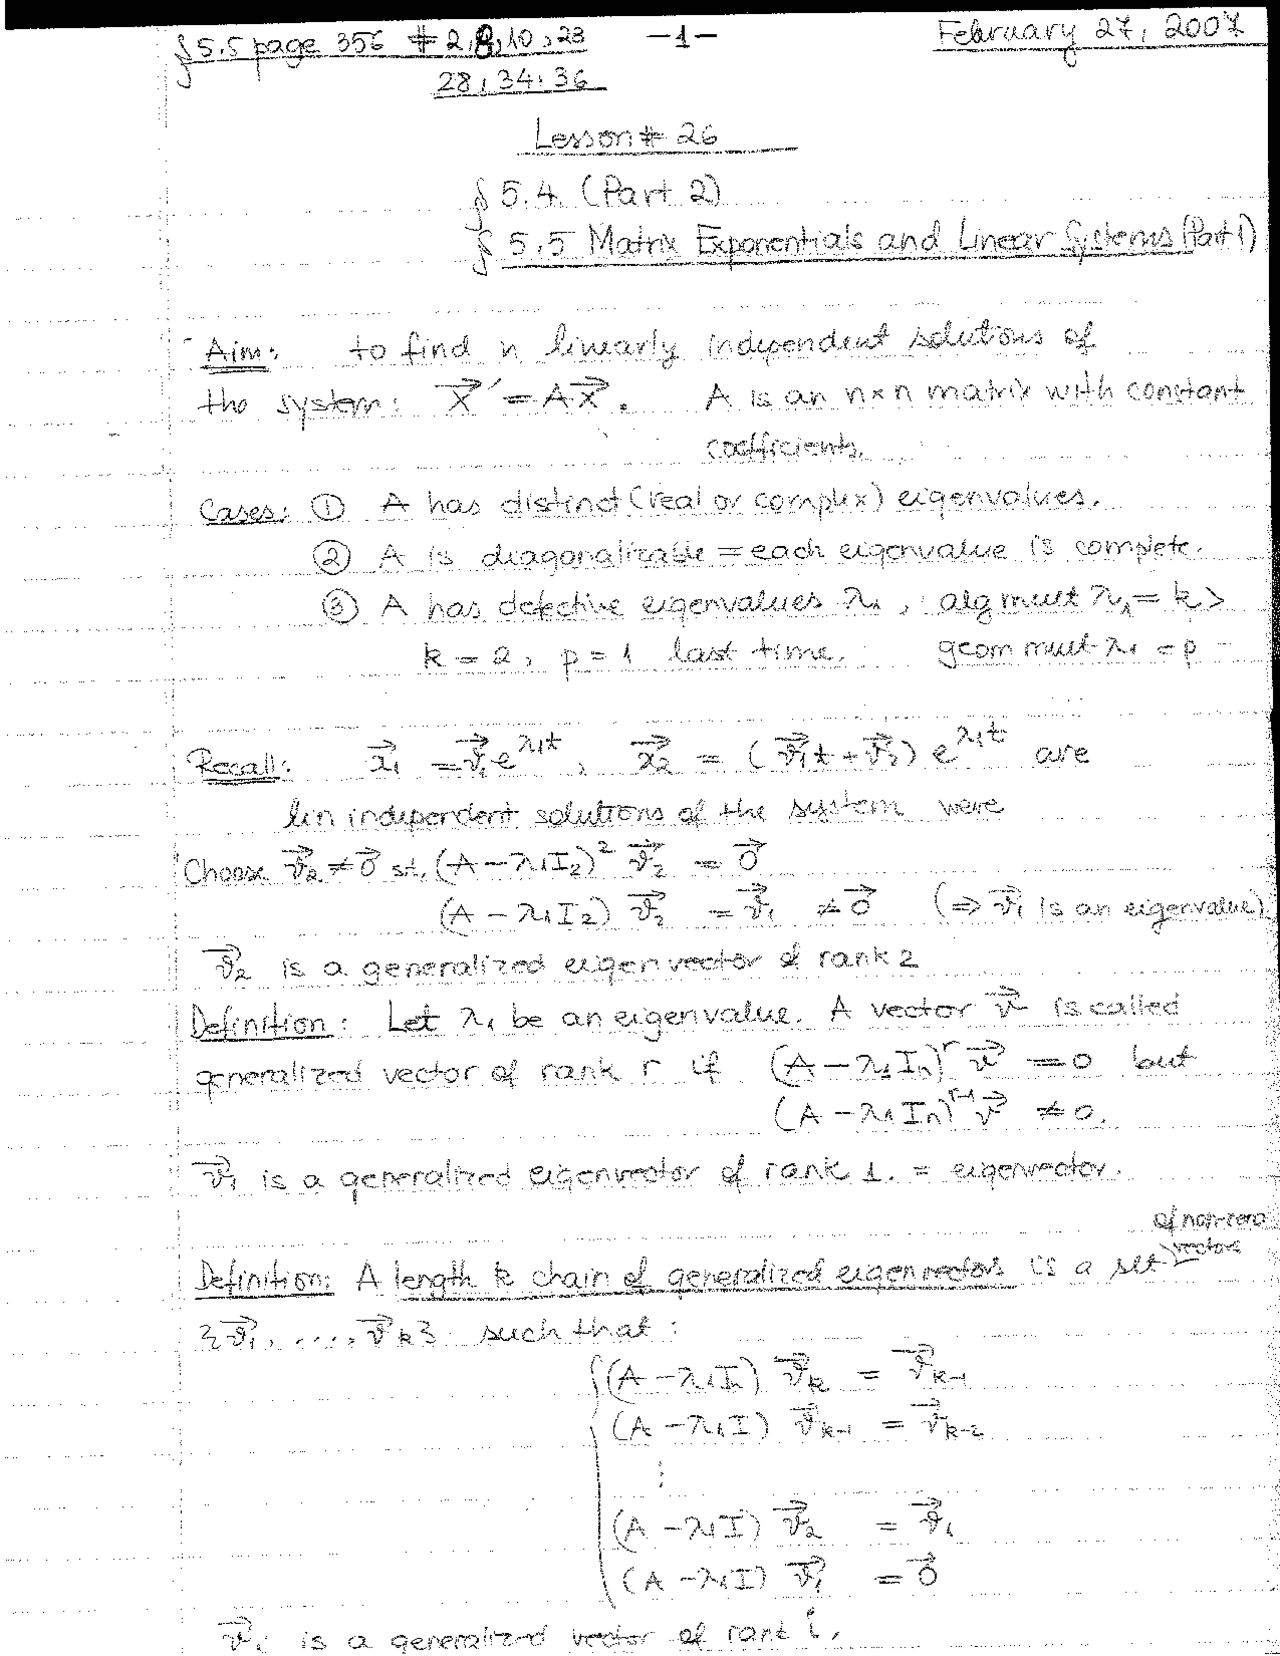 §5.5 page 356 # 2, 8, 10, 23 —1— February 27, 2007
28, 34, 36
Lesson # 26
§ 5.4. (Part 2)
§ 5.5 Matrix Exponentials and Linear Systems (Part 1)
Aim: to find n linearly independent solutions of
the system: X⃗' = AX⃗. A is an n×n matrix with constant
coefficients.
Cases: ① A has distinct (real or complex) eigenvalues.
② A is diagonalizable = each eigenvalue is complete.
③ A has defective eigenvalues λ₁, alg mult λ₁ = k >
k = 2, p = 1 last time. geom mult λ₁ = p
Recall: x⃗₁ = v⃗₁e^{λ₁t}, x⃗₂ = (v⃗₁t + v⃗₂) e^{λ₁t} are
lin independent solutions of the system were
Choose v⃗₂ ≠ 0⃗ st. (A − λ₁I₂)² v⃗₂ = 0⃗
(A − λ₁I₂) v⃗₂ = v⃗₁ ≠ 0⃗ (⇒ v⃗₁ is an eigenvalue)
v⃗₂ is a generalized eigenvector of rank 2
Definition: Let λ₁ be an eigenvalue. A vector v⃗ is called
generalized vector of rank r if (A − λ₁Iₙ)^r v⃗ = 0 but
(A − λ₁Iₙ)^{r-1} v⃗ ≠ 0.
v⃗₁ is a generalized eigenvector of rank 1. = eigenvector.
of non-zero
vectors
Definition: A length k chain of generalized eigenvectors is a set
{v⃗₁, ...., v⃗k} such that:
(A − λ₁Iₙ) v⃗k = v⃗k-1
(A − λ₁I) v⃗k-1 = v⃗k-2
⋮
(A − λ₁I) v⃗₂ = v⃗₁
(A − λ₁I) v⃗₁ = 0⃗
v⃗ᵢ is a generalized vector of rank i.